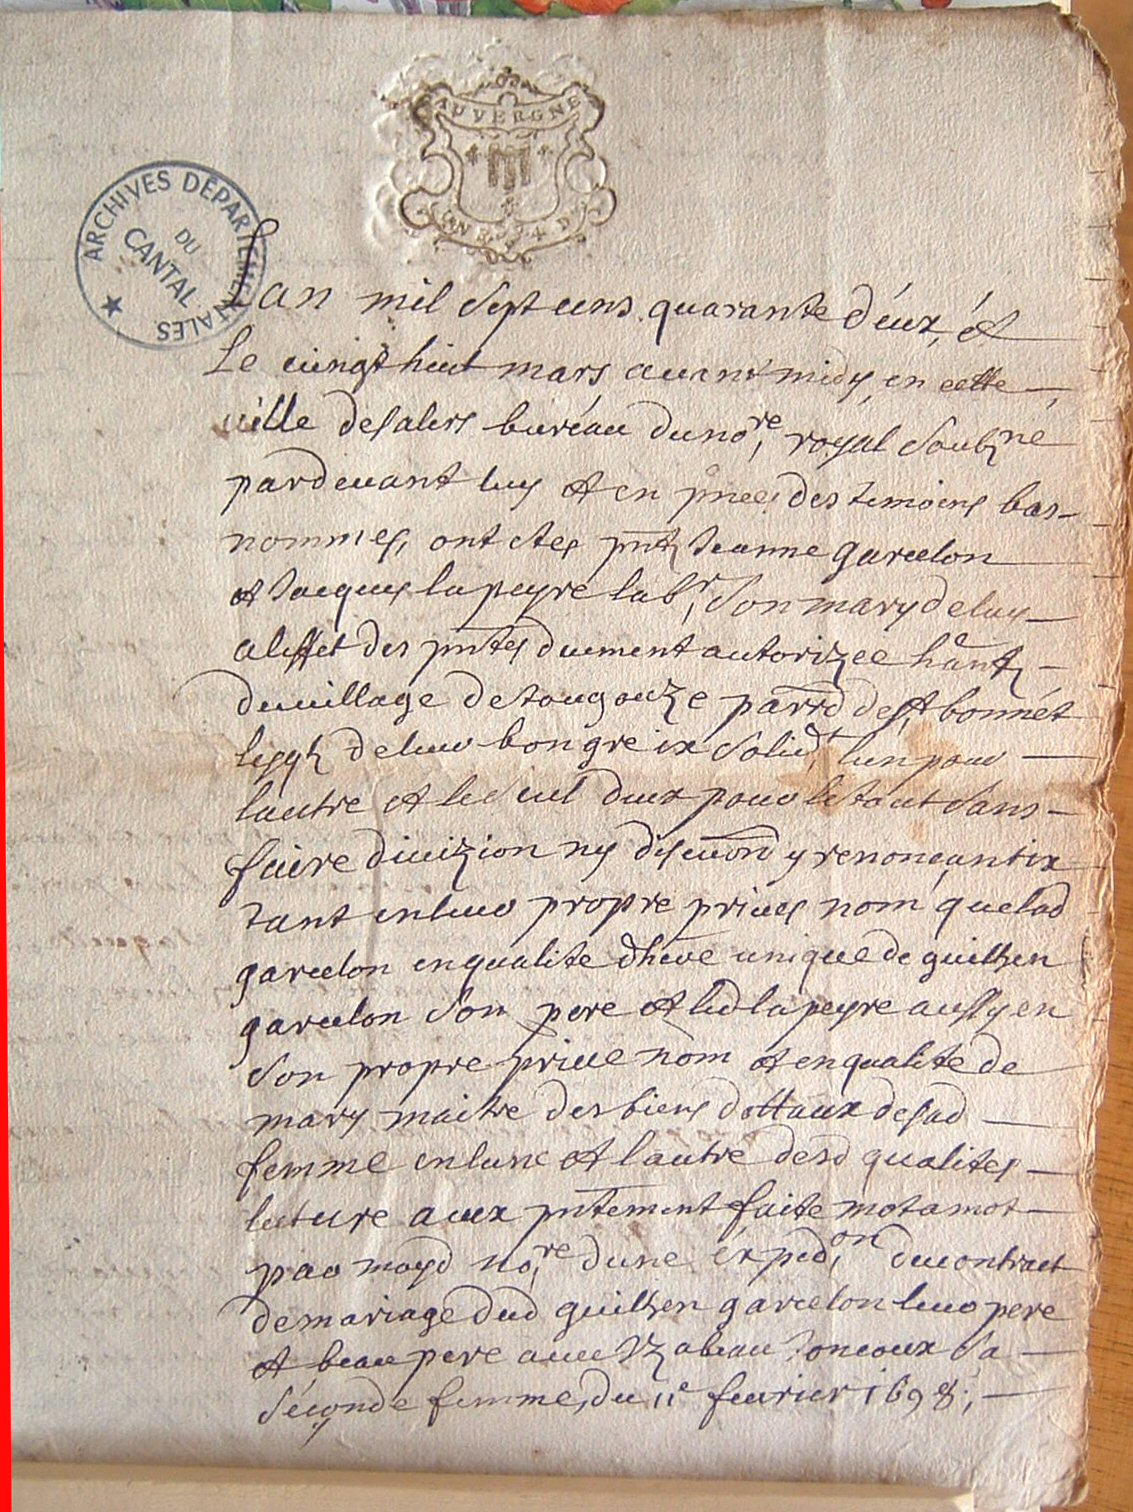 AUVERGNE
ARCHIVES DÉPARTEMENTALES
DU
CANTAL
Lan mil sept cens quarante deux, et
le vingt huit mars avant midy, en cette
ville desalers buréau du nore, royal soubzné
pardevant luy et en pnce, des temoins bas-
nommés, ont etes pntz Jeanne garcelon
et Jacques lapeyre labr, son mary de luy
aleffet des pntes duement autorizée hantz
du village de tougouze parrd de st bonnét
lesqlz de leur bon gre ix solidt, lun pour
lautre et le seul deux pour le tout sans
faire divizion ny discuon y renonçant ix
tant en leur propre privés nom que lad
garcelon en qualite dhere unique de guilhen
garcelon son pere et led lapeyre aussy en
son propre prive nom et en qualite de
mary maitre des biens dottaux desad
femme en lune et lautre desd qualites
lecture aux pntement faite mot a mot
par moyd nore, dune expedon, du contract
de mariage dud guilhen garcelon leur pere
et beau pere avec Izabeau Joncoux sa
séconde femme, du 11e fevrier 1698;